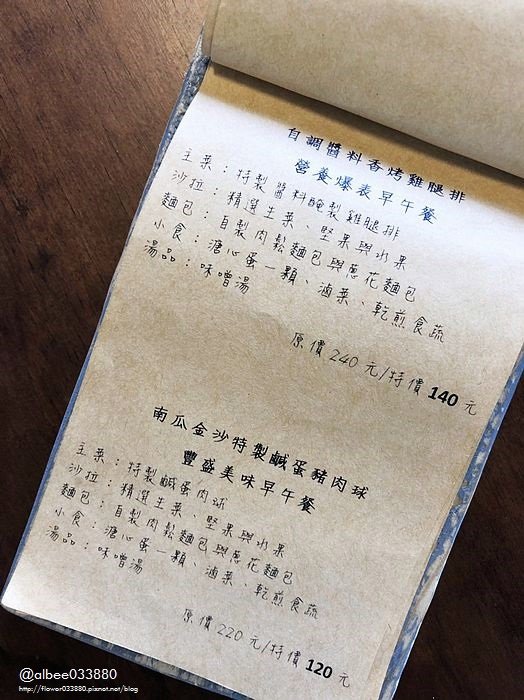 自調醬料香烤雞腿排
營養爆表早午餐
主菜：特製醬料醃製雞腿排
沙拉：精選生菜、堅果與水果
麵包：自製肉鬆麵包與蔥花麵包
小食：溏心蛋一顆、滷菜、乾煎食蔬
湯品：味噌湯
原價240元/特價140元
南瓜金沙特製鹹蛋豬肉球
豐盛美味早午餐
主菜：特製鹹蛋肉球
沙拉：精選生菜、堅果與水果
麵包：自製肉鬆麵包與蔥花麵包
小食：溏心蛋一顆、滷菜、乾煎食蔬
湯品：味噌湯
原價220元/特價120元
@albee033880
http://flower033880.pixnet.net/blog